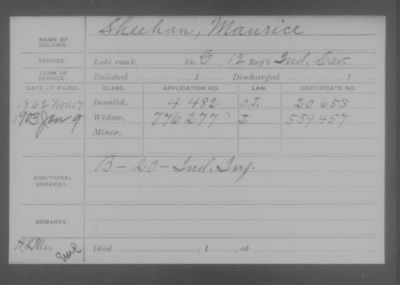 NAME OF SOLDIER: Sheehan, Maurice
SERVICE: Late rank, Co. G, 12 Reg't Ind. Cav.
TERM OF SERVICE: Enlisted , 1 Discharged , 1
DATE OF FILING. CLASS. APPLICATION NO. LAW. CERTIFICATE NO.
1862 Nov 17 Invalid, 4 482 20 653
Jan 9 Widow, 776 277 559457
Minor,
ADDITIONAL SERVICES: B-20-Ind. Inf.
REMARKS:
Died , 1 , at